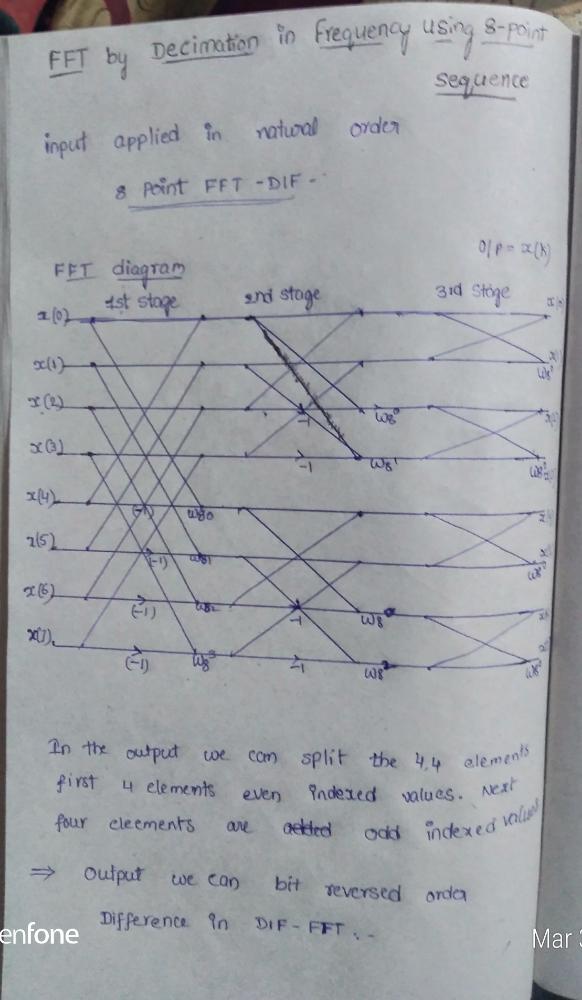 FFT by Decimation in Frequency using 8-point
sequence
input applied in natural order
8 Point FFT -DIF-
O/P = x(k)
FFT diagram
1st stage 2nd stage 3rd stage
x(0)
x(1)
x(2)
-1 W8⁰
x(3)
-1 W8¹
x(4)
(-1) W80
x(5)
(-1) W81
x(6)
(-1) W82 -1 W8
x(7)
(-1) W8³ -1 W8²
In the output we can split the 4,4 elements
first 4 elements even indexed values. Next
four eleements are odd indexed values
⇒ Output we can bit reversed order
Difference in DIF-FFT.
enfone
Mar 3